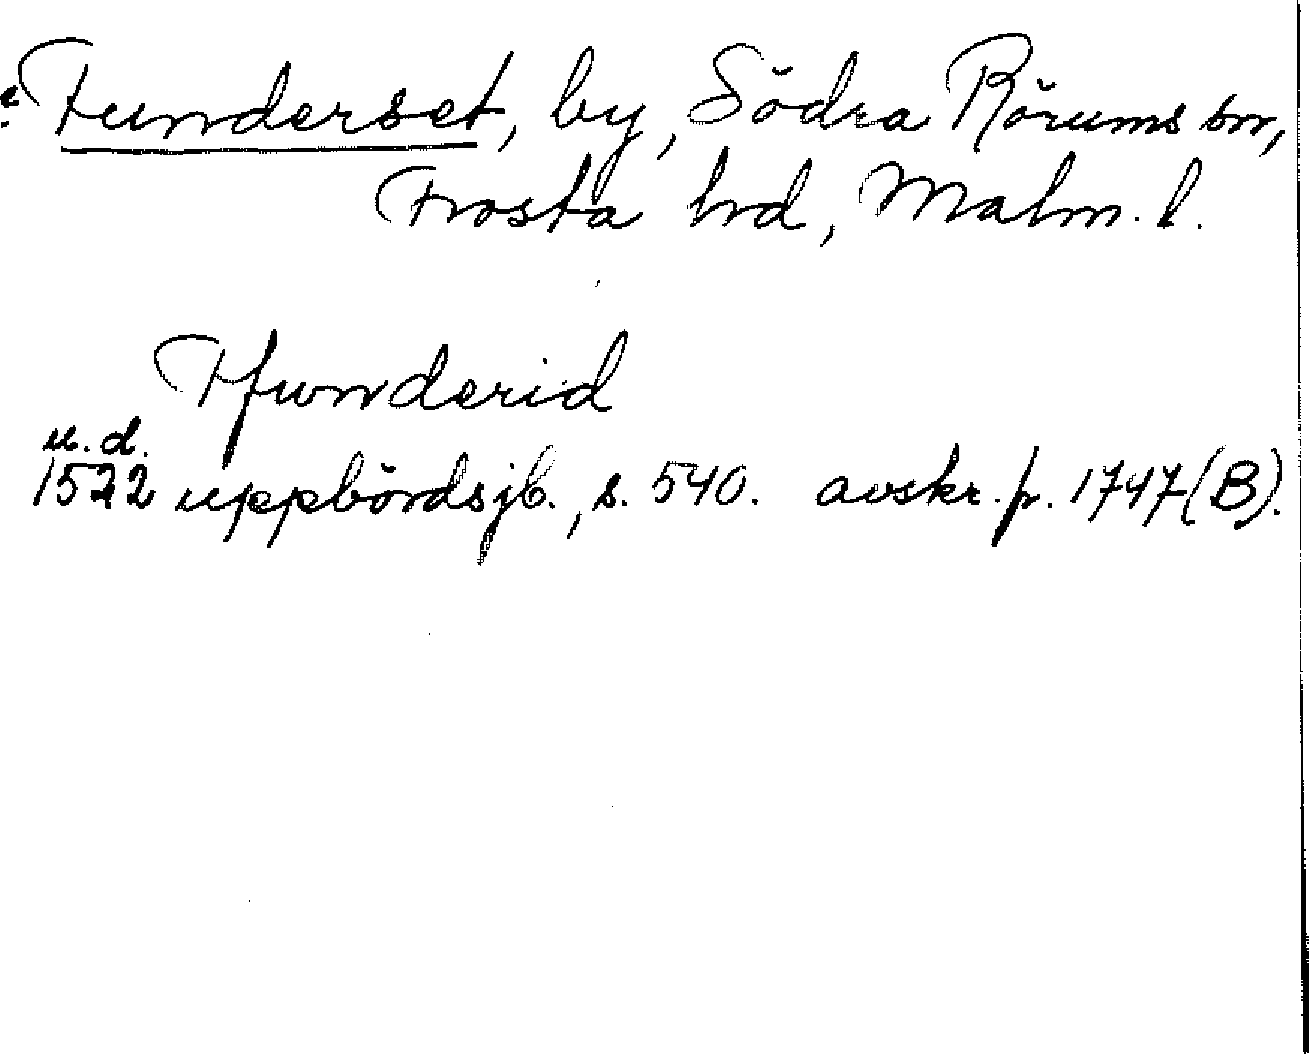 Funderset, by, Södra Rörums sn,
Frosta hrd, Malm. l.
Ffunderid
u. d.
1522 uppbördsjb., s. 540. avskr. fr. 1747 (B).